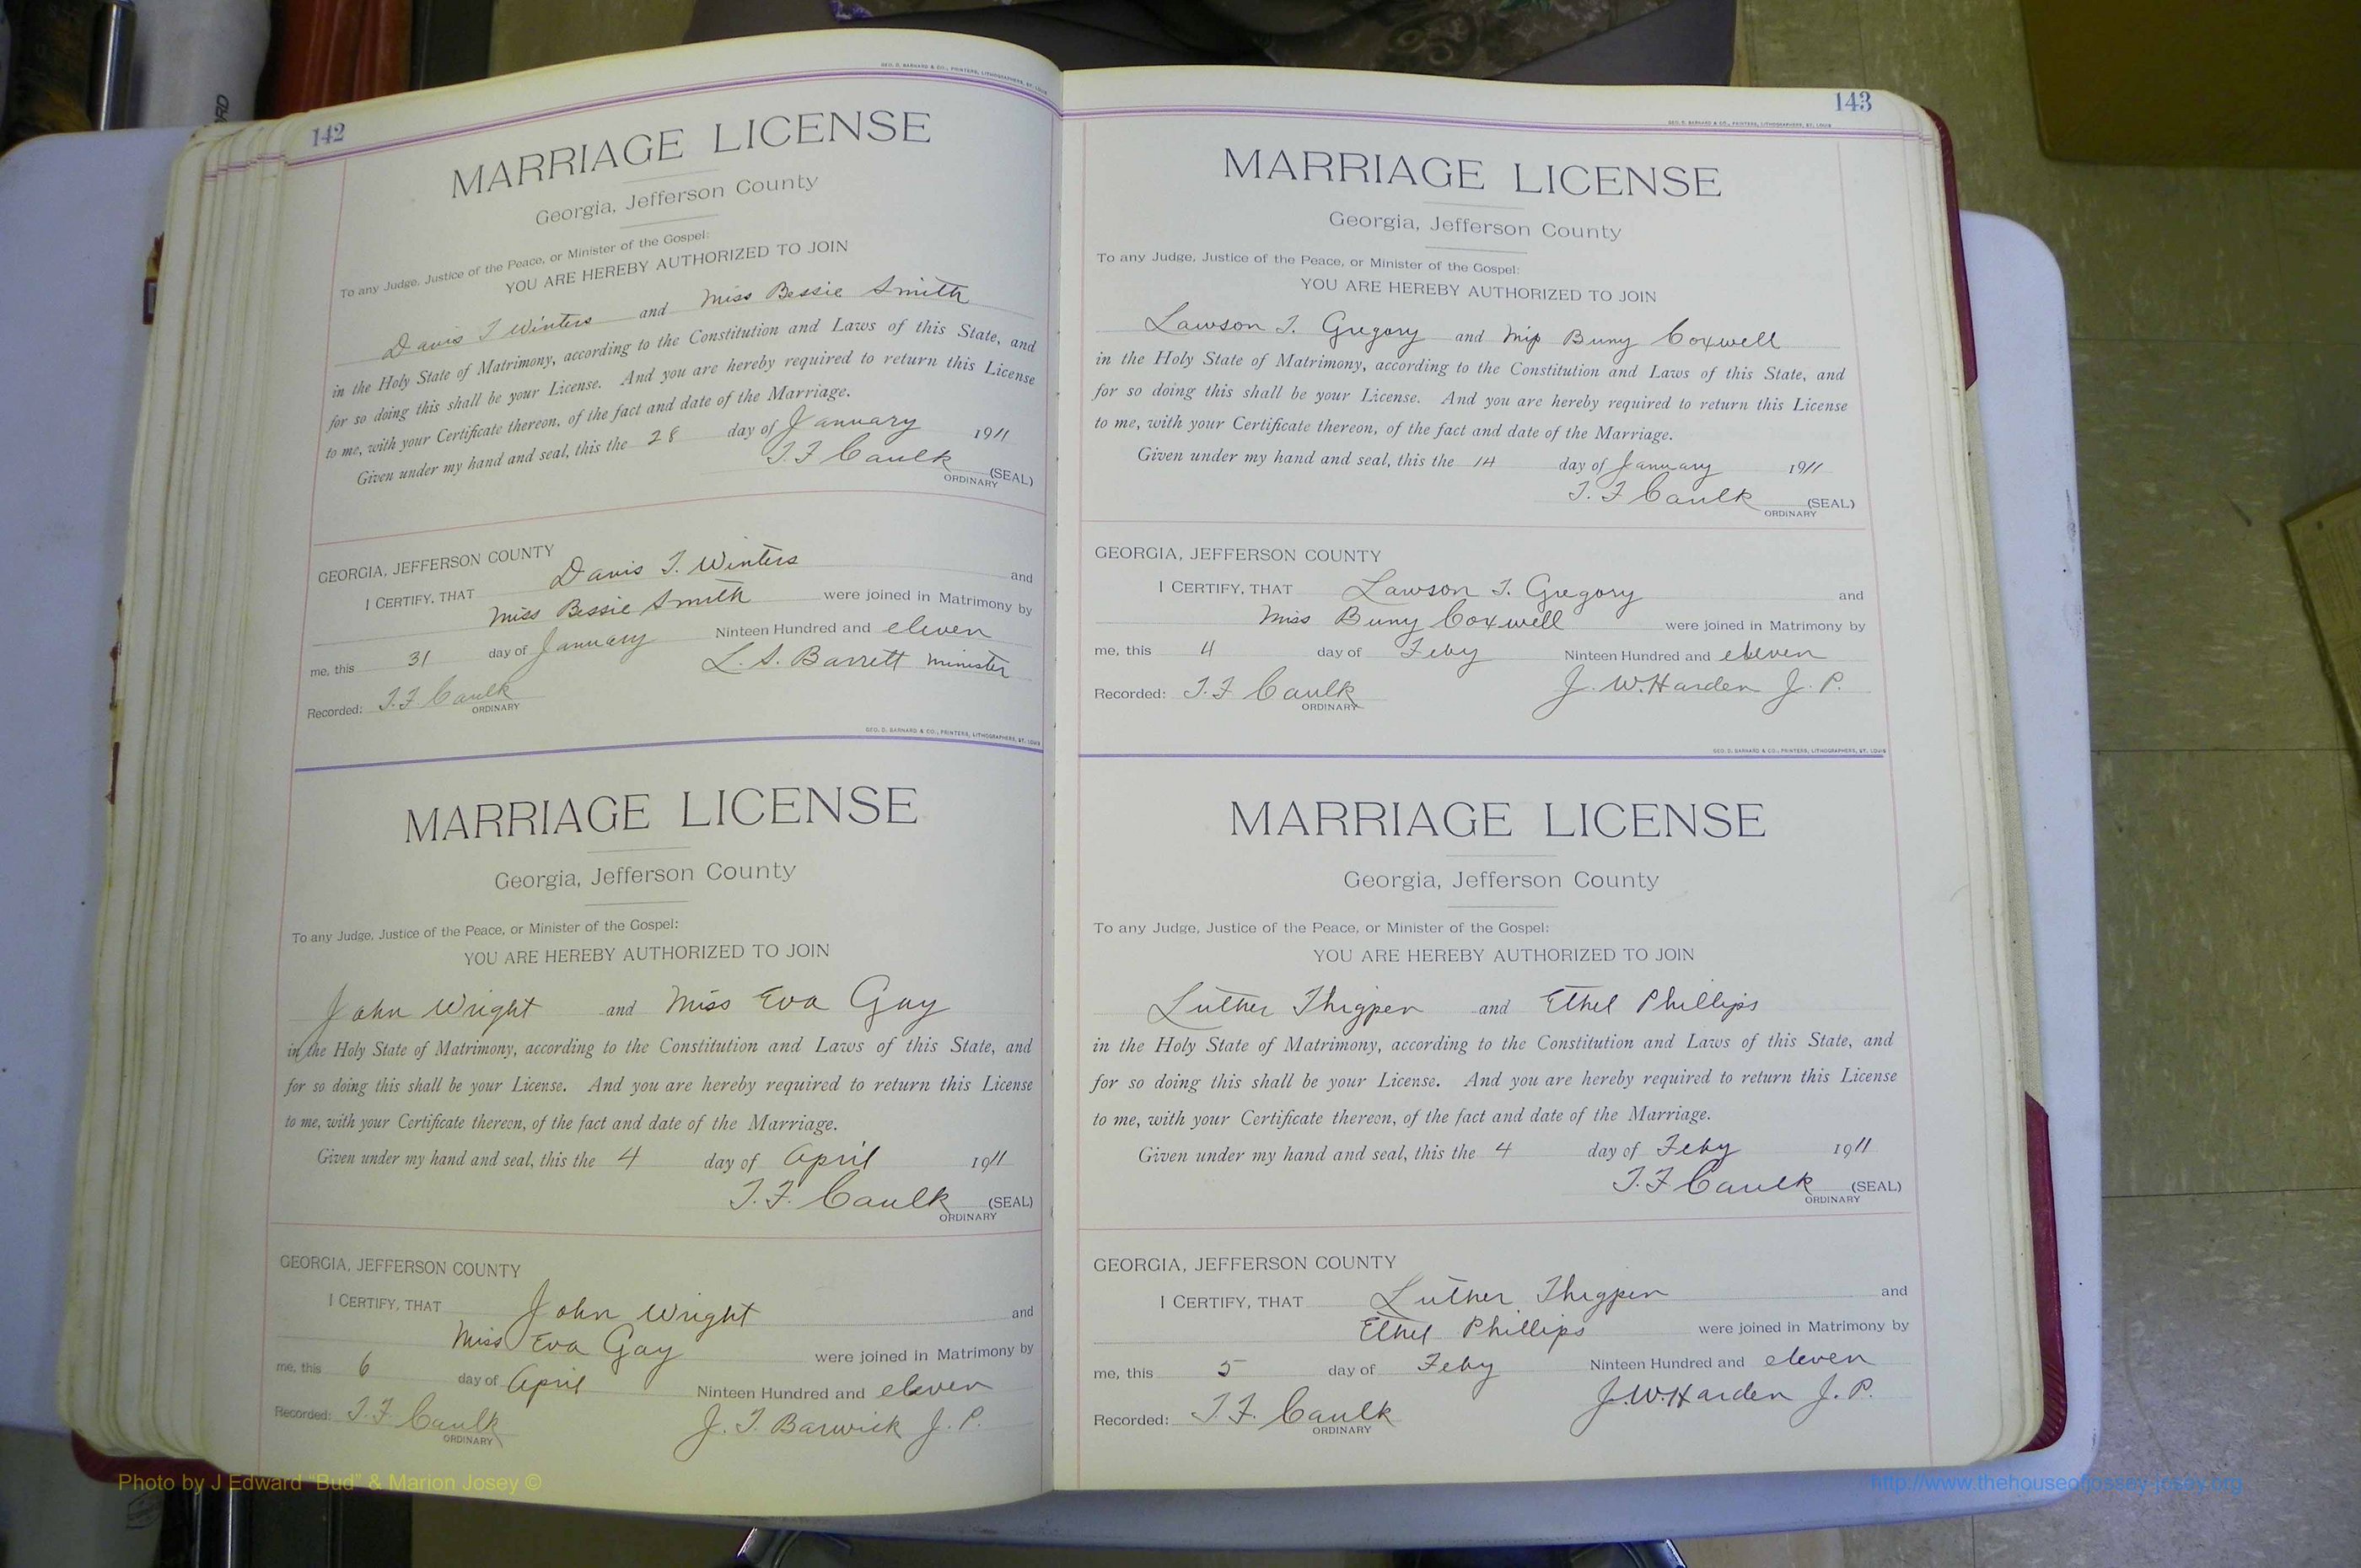 GEO. D. BARNARD & CO., PRINTERS, LITHOGRAPHERS, ST. LOUIS
142
MARRIAGE LICENSE
Georgia, Jefferson County
To any Judge, Justice of the Peace, or Minister of the Gospel:
YOU ARE HEREBY AUTHORIZED TO JOIN
Davis T Winters and Miss Bessie Smith
in the Holy State of Matrimony, according to the Constitution and Laws of this State, and
for so doing this shall be your License. And you are hereby required to return this License
to me, with your Certificate thereon, of the fact and date of the Marriage.
Given under my hand and seal, this the 28 day of January 1911
T. F Caulk (SEAL)
ORDINARY
GEORGIA, JEFFERSON COUNTY
I CERTIFY, THAT Davis T. Winters and
Miss Bessie Smith were joined in Matrimony by
me, this 31 day of January Ninteen Hundred and eleven
L. S. Barrett Minister
Recorded: T. F. Caulk
ORDINARY
GEO. D. BARNARD & CO., PRINTERS, LITHOGRAPHERS, ST. LOUIS
MARRIAGE LICENSE
Georgia, Jefferson County
To any Judge, Justice of the Peace, or Minister of the Gospel:
YOU ARE HEREBY AUTHORIZED TO JOIN
John Wright and Miss Eva Gay
in the Holy State of Matrimony, according to the Constitution and Laws of this State, and
for so doing this shall be your License. And you are hereby required to return this License
to me, with your Certificate thereon, of the fact and date of the Marriage.
Given under my hand and seal, this the 4 day of April 1911
T. F. Caulk (SEAL)
ORDINARY
GEORGIA, JEFFERSON COUNTY
I CERTIFY, THAT John Wright and
Miss Eva Gay were joined in Matrimony by
me, this 6 day of April Ninteen Hundred and eleven
J. T. Barwick J. P.
Recorded: T. F. Caulk
ORDINARY
143
GEO. D. BARNARD & CO., PRINTERS, LITHOGRAPHERS, ST. LOUIS
MARRIAGE LICENSE
Georgia, Jefferson County
To any Judge, Justice of the Peace, or Minister of the Gospel:
YOU ARE HEREBY AUTHORIZED TO JOIN
Lawson T. Gregory and Miss Buny Coxwell
in the Holy State of Matrimony, according to the Constitution and Laws of this State, and
for so doing this shall be your License. And you are hereby required to return this License
to me, with your Certificate thereon, of the fact and date of the Marriage.
Given under my hand and seal, this the 14 day of January 1911
T. F Caulk (SEAL)
ORDINARY
GEORGIA, JEFFERSON COUNTY
I CERTIFY, THAT Lawson T. Gregory and
Miss Buny Coxwell were joined in Matrimony by
me, this 4 day of Feby Ninteen Hundred and eleven
J. W. Harden J. P.
Recorded: T. F. Caulk
ORDINARY
GEO. D. BARNARD & CO., PRINTERS, LITHOGRAPHERS, ST. LOUIS
MARRIAGE LICENSE
Georgia, Jefferson County
To any Judge, Justice of the Peace, or Minister of the Gospel:
YOU ARE HEREBY AUTHORIZED TO JOIN
Luther Thigpen and Ethel Phillips
in the Holy State of Matrimony, according to the Constitution and Laws of this State, and
for so doing this shall be your License. And you are hereby required to return this License
to me, with your Certificate thereon, of the fact and date of the Marriage.
Given under my hand and seal, this the 4 day of Feby 1911
T. F Caulk (SEAL)
ORDINARY
GEORGIA, JEFFERSON COUNTY
I CERTIFY, THAT Luther Thigpen and
Ethel Phillips were joined in Matrimony by
me, this 5 day of Feby Ninteen Hundred and eleven
J. W. Harden J. P.
Recorded: T. F. Caulk
ORDINARY
Photo by J Edward "Bud" & Marion Josey ©
http://www.thehouseofjossey-josey.org